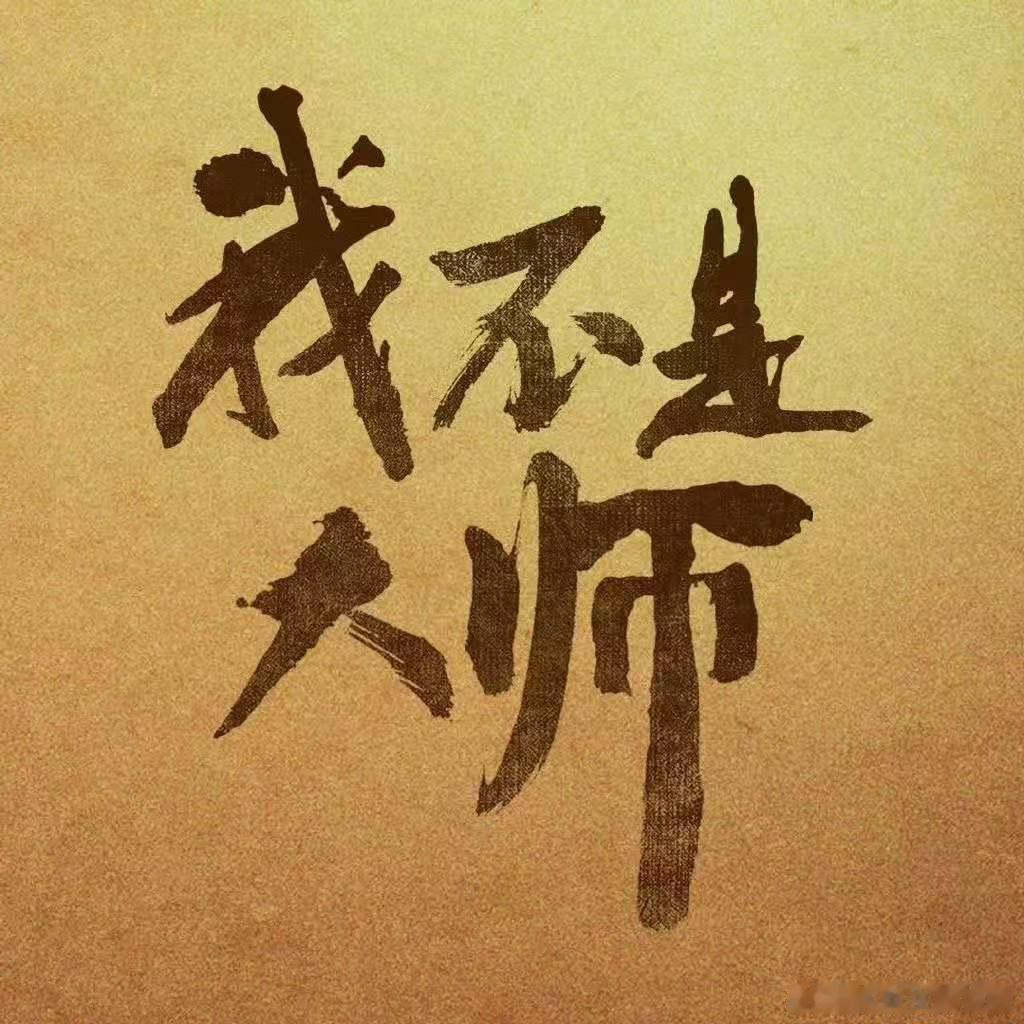 我不是
大师